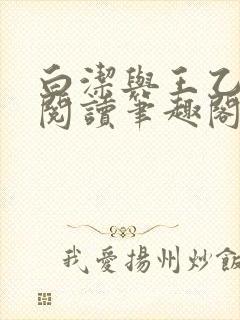 白潔與王乙
閱讀筆趣閣
我愛揚州炒飯